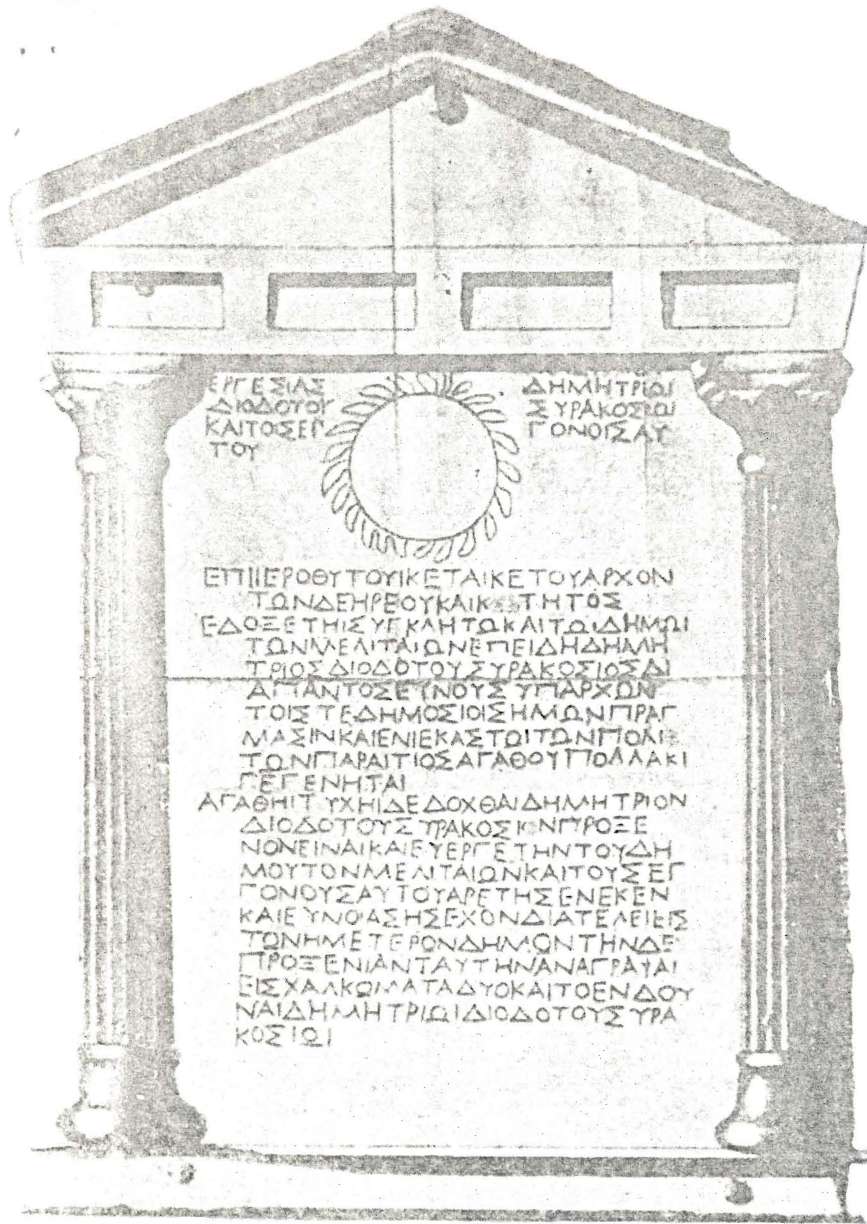 ΕΡΓΕΣΙΑΣ
ΔΙΟΔΟΤΟΥ
ΚΑΙΤΟΙΣΕΓ
ΤΟΥ
ΔΗΜΗΤΡΙΩΙ
ΣΥΡΑΚΟΣΙΩΙ
ΓΟΝΟΙΣΑΥ
ΕΠΙΙΕΡΟΘΥΤΟΥΙΚΕΤΑΙΚΕΤΟΥΑΡΧΟΝ
ΤΩΝΔΕΗΡΕΟΥΚΑΙΚ ΤΗΤΟΣ
ΕΔΟΞΕΤΗΙΣΥΓΚΛΗΤΩΚΑΙΤΩΙΔΗΜΩΙ
ΤΩΝΜΕΛΙΤΑΙΩΝΕΠΕΙΔΗΔΗΜΗ
ΤΡΙΟΣΔΙΟΔΟΤΟΥΣΥΡΑΚΟΣΙΟΣΔΙ
ΑΠΑΝΤΟΣΕΥΝΟΥΣΥΠΑΡΧΩΝ
ΤΟΙΣΤΕΔΗΜΟΣΙΟΙΣΗΜΩΝΠΡΑΓ
ΜΑΣΙΝΚΑΙΕΝΙΕΚΑΣΤΩΙΤΩΝΠΟΛΙ
ΤΩΝΠΑΡΑΙΤΙΟΣΑΓΑΘΟΥΠΟΛΛΑΚΙ
ΓΕΓΕΝΗΤΑΙ
ΑΓΑΘΗΙΤΥΧΗΙΔΕΔΟΧΘΑΙΔΗΜΗΤΡΙΟΝ
ΔΙΟΔΟΤΟΥΣΥΡΑΚΟΣΙΟΝΠΡΟΞΕ
ΝΟΝΕΙΝΑΙΚΑΙΕΥΕΡΓΕΤΗΝΤΟΥΔΗ
ΜΟΥΤΟΝΜΕΛΙΤΑΙΩΝΚΑΙΤΟΥΣΕΓ
ΓΟΝΟΥΣΑΥΤΟΥΑΡΕΤΗΣΕΝΕΚΕΝ
ΚΑΙΕΥΝΟΙΑΣΗΣΕΧΟΝΔΙΑΤΕΛΕΙΕΙΣ
ΤΩΝΗΜΕΤΕΡΟΝΔΗΜΟΝΤΗΝΔΕ
ΠΡΟΞΕΝΙΑΝΤΑΥΤΗΝΑΝΑΓΡΑΨΑΙ
ΕΙΣΧΑΛΚΩΜΑΤΑΔΥΟΚΑΙΤΟΕΝΔΟΥ
ΝΑΙΔΗΜΗΤΡΙΩΙΔΙΟΔΟΤΟΥΣΥΡΑ
ΚΟΣΙΩΙ